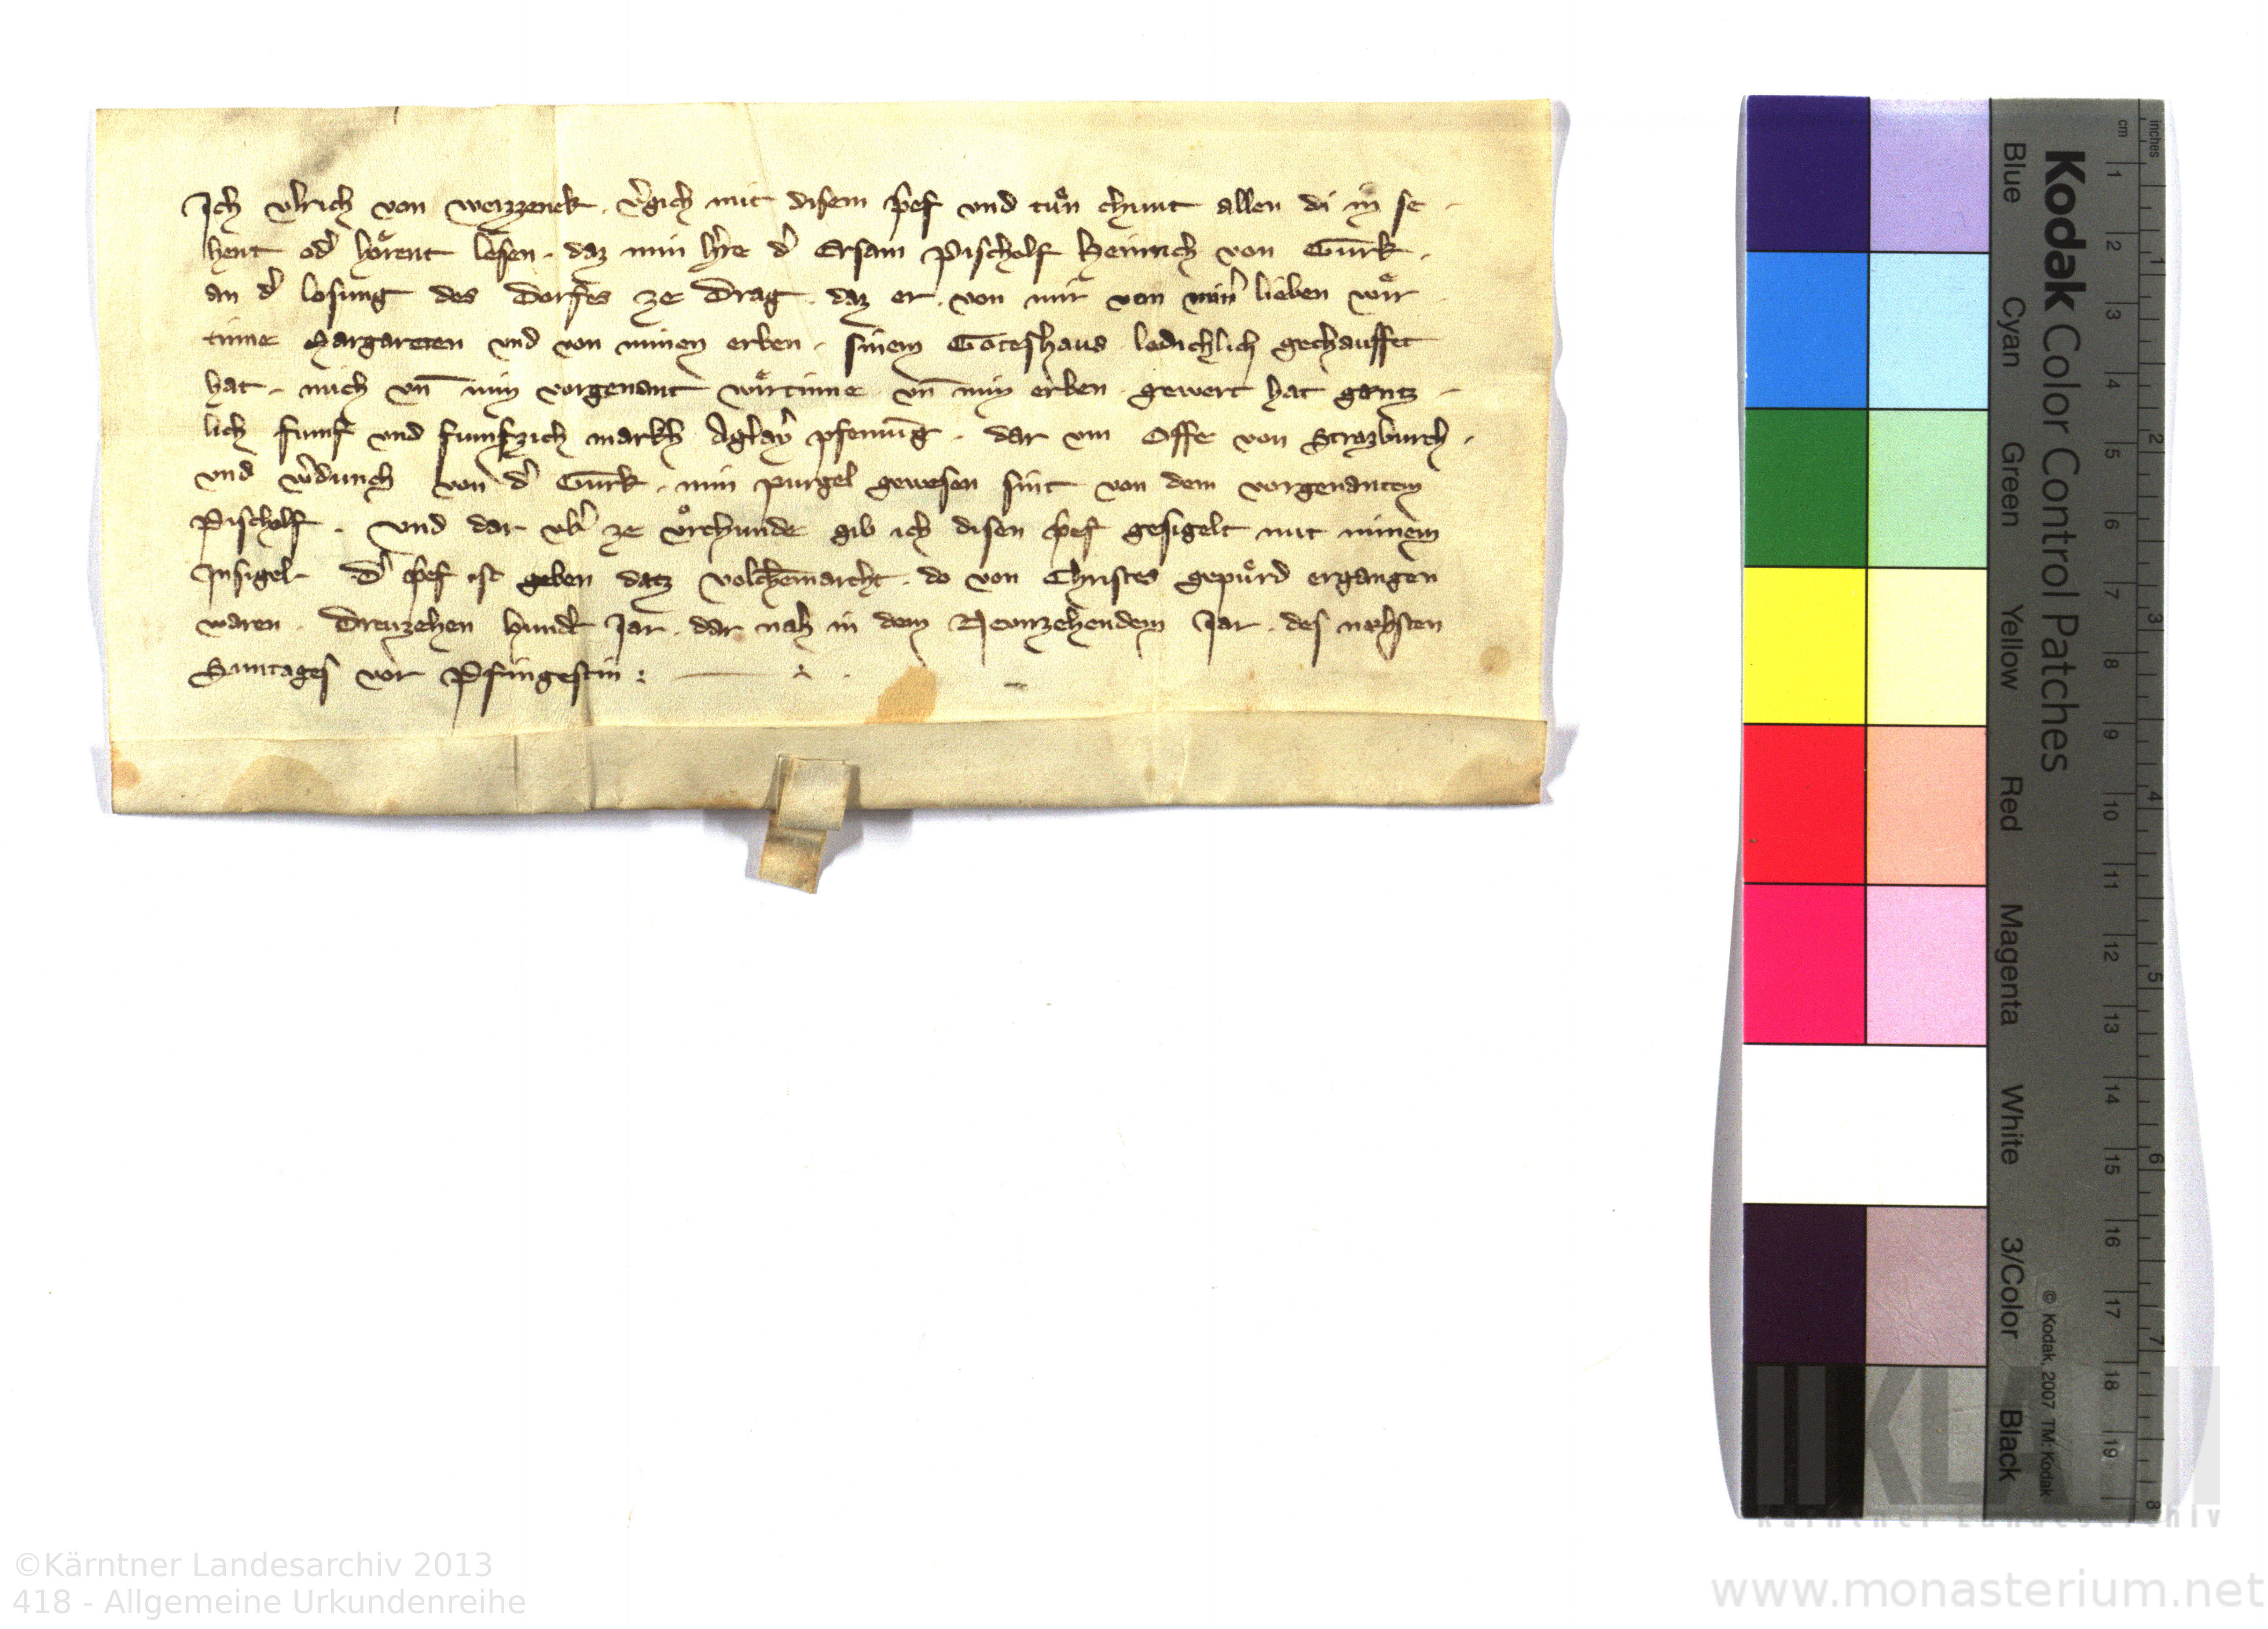 Ich Vlrich von Weizzenek . v̾gich mit disem p̾ef vnd tuͤn chunt allen di in se -
hent od̾ hoͤrent lesen . daz min h̾re d̾ Ersam Pischolf Heinrich von Gurk .
an d̾ losung des Dorfes ze Drag . daz er . von mir von min̾ lieben wiͤr
tinne Margareten vnd von minen erben . sinem Goteshaus ledichlich gechauffet
hat . mich vn̄ min vorgenant wiͤrtinne . vn̄ min erben . gewert hat gentz -
lich fumf vnd fumfzich markh Aglay̾ pfenni̅g . dar vm Offe von Strazburch .
vnd W̾dunch von d̾ Gurk . min purgel gewesen sint von dem vorgenantem
Pischolf . Vnd dar vb̾ ze vͤrchunde gib ich disen p̾ef gesigelt mit minem
Insigel . D̾ p̾ef ist geben datz Volche̅marcht . do von Christes gepuͤrd ergangen
waren . Dreuzehen hund̾t Jar . dar nah in dem Neunzehendem Jar . des nehsten
Suntages vor Pfingestin :
Kodak Color Control Patches
Blue Cyan Green Yellow Red Magenta White 3/Color Black
© Kodak, 2007 TM: Kodak
inches 1 2 3 4 5 6 7 8
cm 1 2 3 4 5 6 7 8 9 10 11 12 13 14 15 16 17 18 19
KLA
Kärntner Landesarchiv
©Kärntner Landesarchiv 2013
418 - Allgemeine Urkundenreihe
www.monasterium.net